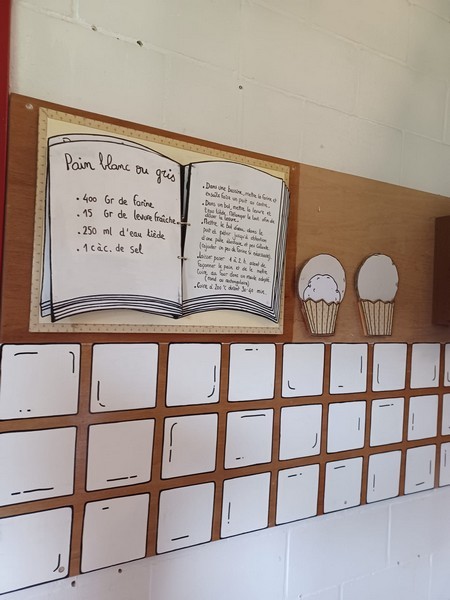 Pain blanc ou gris
• 400 Gr de farine
• 15 Gr de levure fraîche
• 250 ml d'eau tiède
• 1 càc. de sel
• Dans une bassine, mettre la farine et
ensuite faire un puit au centre.
• Dans un bol, mettre la levure et
l'eau tiède. Mélanger le tout afin de
diluer la levure.
• Mettre le tout dans le
puit et pétrir jusqu'à obtention
d'une pâte élastique et peu collante.
(rajouter un peu de farine si nécessaire).
• Laisser poser 1 à 2 h avant de
façonner le pain et de le mettre
cuire au four dans un moule adapté
(rond ou rectangulaire)
• Cuire à 200 °C durant 30-40 min.